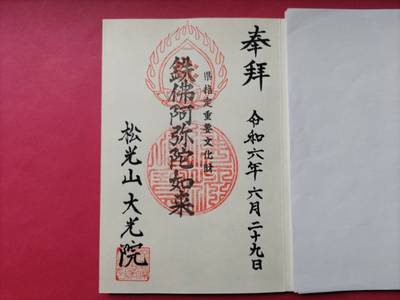 奉拝
令和六年六月二十九日
県指定重要文化財
鉄佛阿弥陀如来
松光山大光院